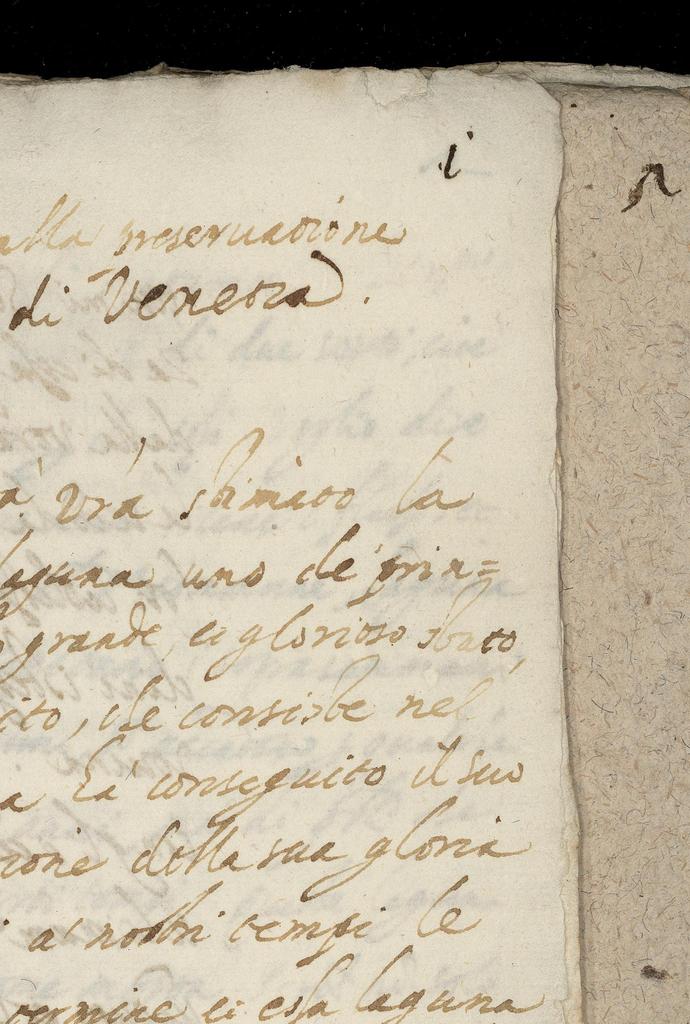 i
alla preseruatione
di Venetia.
stimato la
laguna uno de' prin=
grande, et glorioso stato,
ito, che consiste nel
a hà conseguito il suo
zione della sua gloria
i a' nostri tempi le
termine et essa laguna